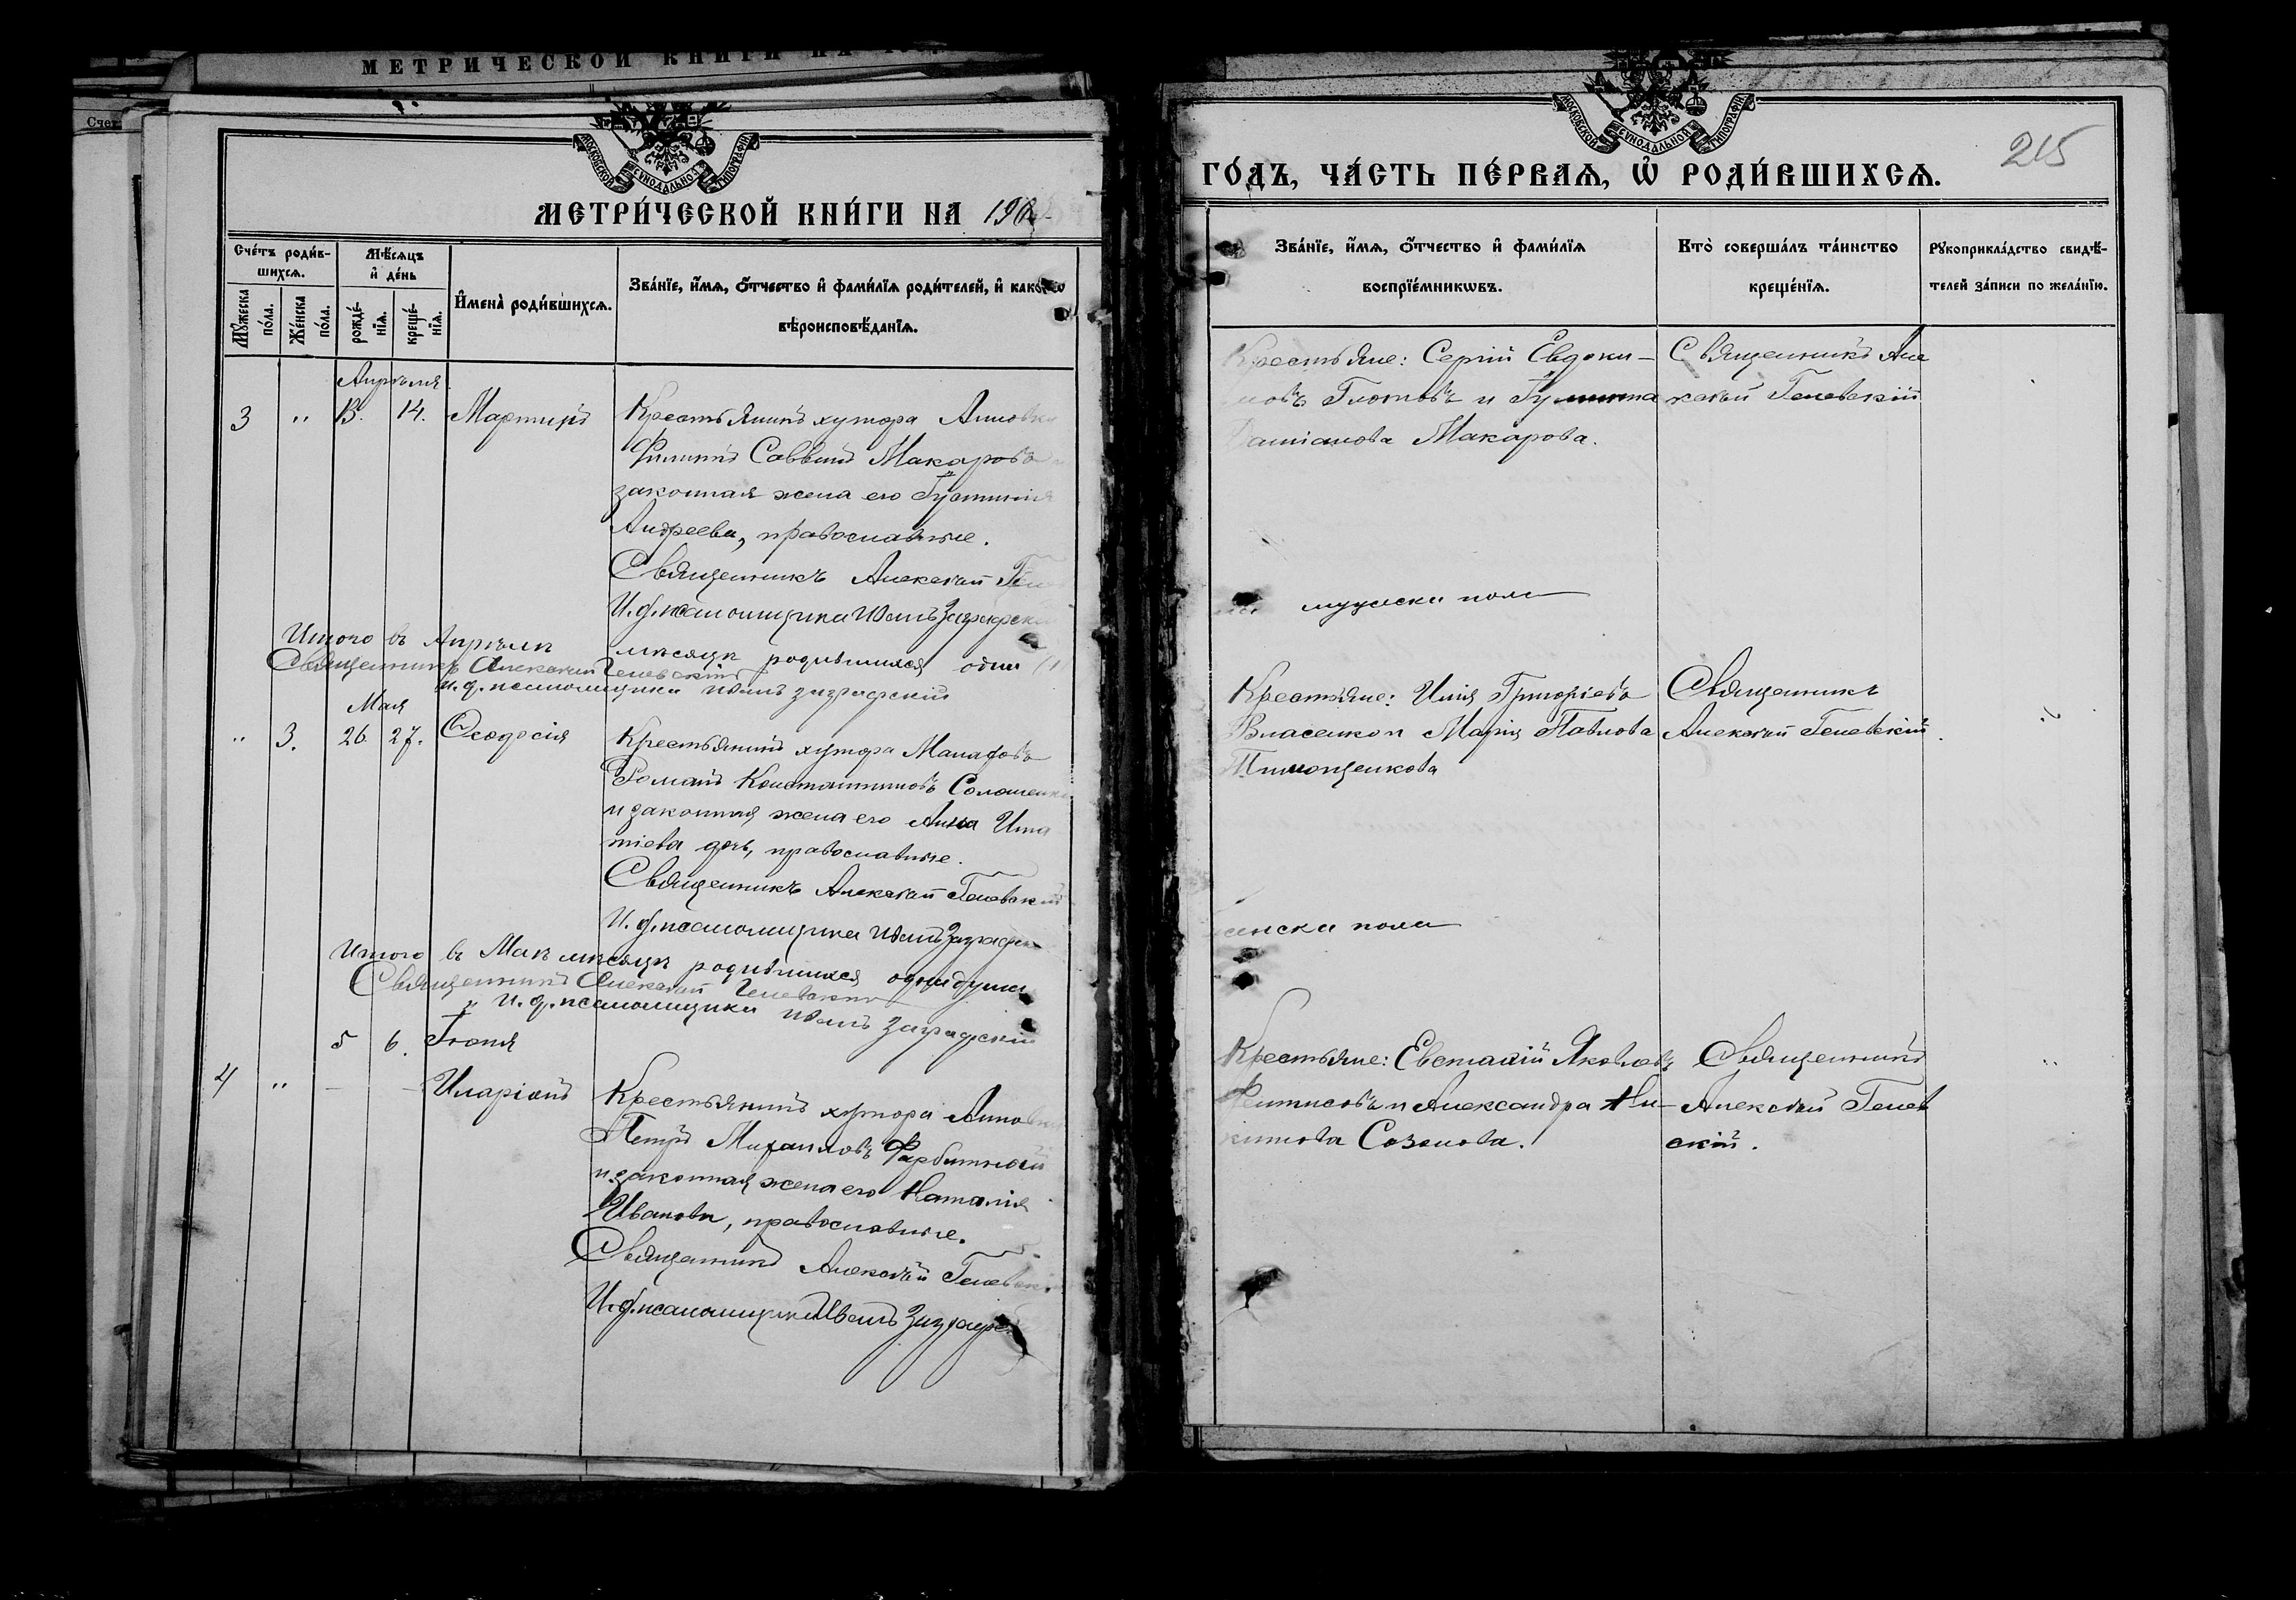 МЕТРИЧЕСКОЙ КНИГИ НА
Счет
МОСКОВСКОЙ СѴНОДАЛЬНОЙ ТИПОГРАФІИ
МЕТРИ́ЧЕСКОЙ КНИ́ГИ НА 190
Сче́тъ роди́в-
шихсѧ.
Мѣ́сѧцъ
и҆ де́нь
Мꙋ́жеска
по́ла.
Же́нска
по́ла.
рожде́-
нїѧ.
креще́-
нїѧ.
И҆мена̀ роди́вшихсѧ.
Зва́нїе, и҆́мѧ, ѻ҆́тчество и҆ фами́лїѧ роди́телей, и҆ како́гѡ
вѣроисповѣ́данїѧ.
Апрѣля
3 " 13. 14. Мартинъ
Крестьянинъ хутора Анновки
Филиппъ Саввинъ Макаровъ
законная жена его Іустинія
Андреева, православные.
Священникъ Алексѣй
И. д. псаломщика Иванъ Заграфскі
Итого въ Апрѣлѣ мѣсяцѣ родившихся один
Священникъ Алексѣй Геневскій
и. д. псаломщика Иванъ Заграфскій
Мая
" 3. 26. 27. Ѳеодосія
Крестьянинъ хутора
Романъ Константиновъ
и законная жена его Анна Игна
тіева дочь, православные.
Священникъ Алексѣй Геневскій
И. д. псаломщика Иванъ Заграфскі
Итого въ Маѣ мѣсяцѣ родившихся одна душа
Священникъ Алексѣй Геневскій
и. д. псаломщика Иванъ Заграфскій
5 6. Іюня
4 " — — Иларіонъ
Крестьянинъ хутора Анновки
Петръ Михаиловъ
и законная жена его Наталія
Иванова, православные.
Священникъ Алексѣй Геневскі
И. д. псаломщика Иванъ Заграфскі
МОСКОВСКОЙ СѴНОДАЛЬНОЙ ТИПОГРАФІИ
215
ГО́ДЪ, ЧА́СТЬ ПЕ́РВАѦ, Ѡ҆ РОДИ́ВШИХСѦ.
Зва́нїе, и҆́мѧ, ѻ҆́тчество и҆ фами́лїѧ
воспрїе́мникѡвъ.
Кто̀ соверша́лъ та́инство
креще́нїѧ.
Рꙋкоприкла́дство свидѣ́-
телей за́писи по жела́нїю.
Крестьяне: Сергій Евдоки-
мовъ Глотовъ и
Даміанова Макарова.
Священникъ Але
ксѣй Геневскій
мужеска пола
Крестьяне: Илія Григоріевъ
Власенко и Марія Павлова
Тимощенкова
Священникъ
Алексѣй Геневскій.
женска пола
Крестьяне: Евстафій Яковлевъ
Фетисовъ и Александра Ни-
китова Созонова.
Священникъ
Алексѣй Генев
скій.